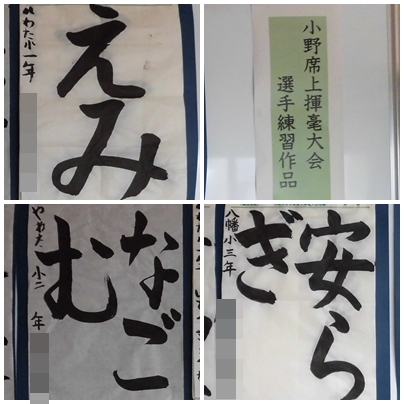 えみ
やわた小一年
小野席上揮毫大会
選手練習作品
なご
む
やわた小二年
安ら
ぎ
八幡小三年